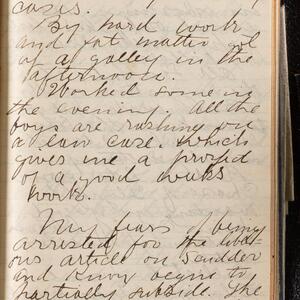 cases.
By hard work
and fat matter
of a galley in the
afternoon.
Worked some in
the evening. All the
boys are rushing on
a law case, which
gives me a
of a good week's
work.
My fears of being
arrested for the libel-
ous article on Scudder
and begins to
partially subside. The